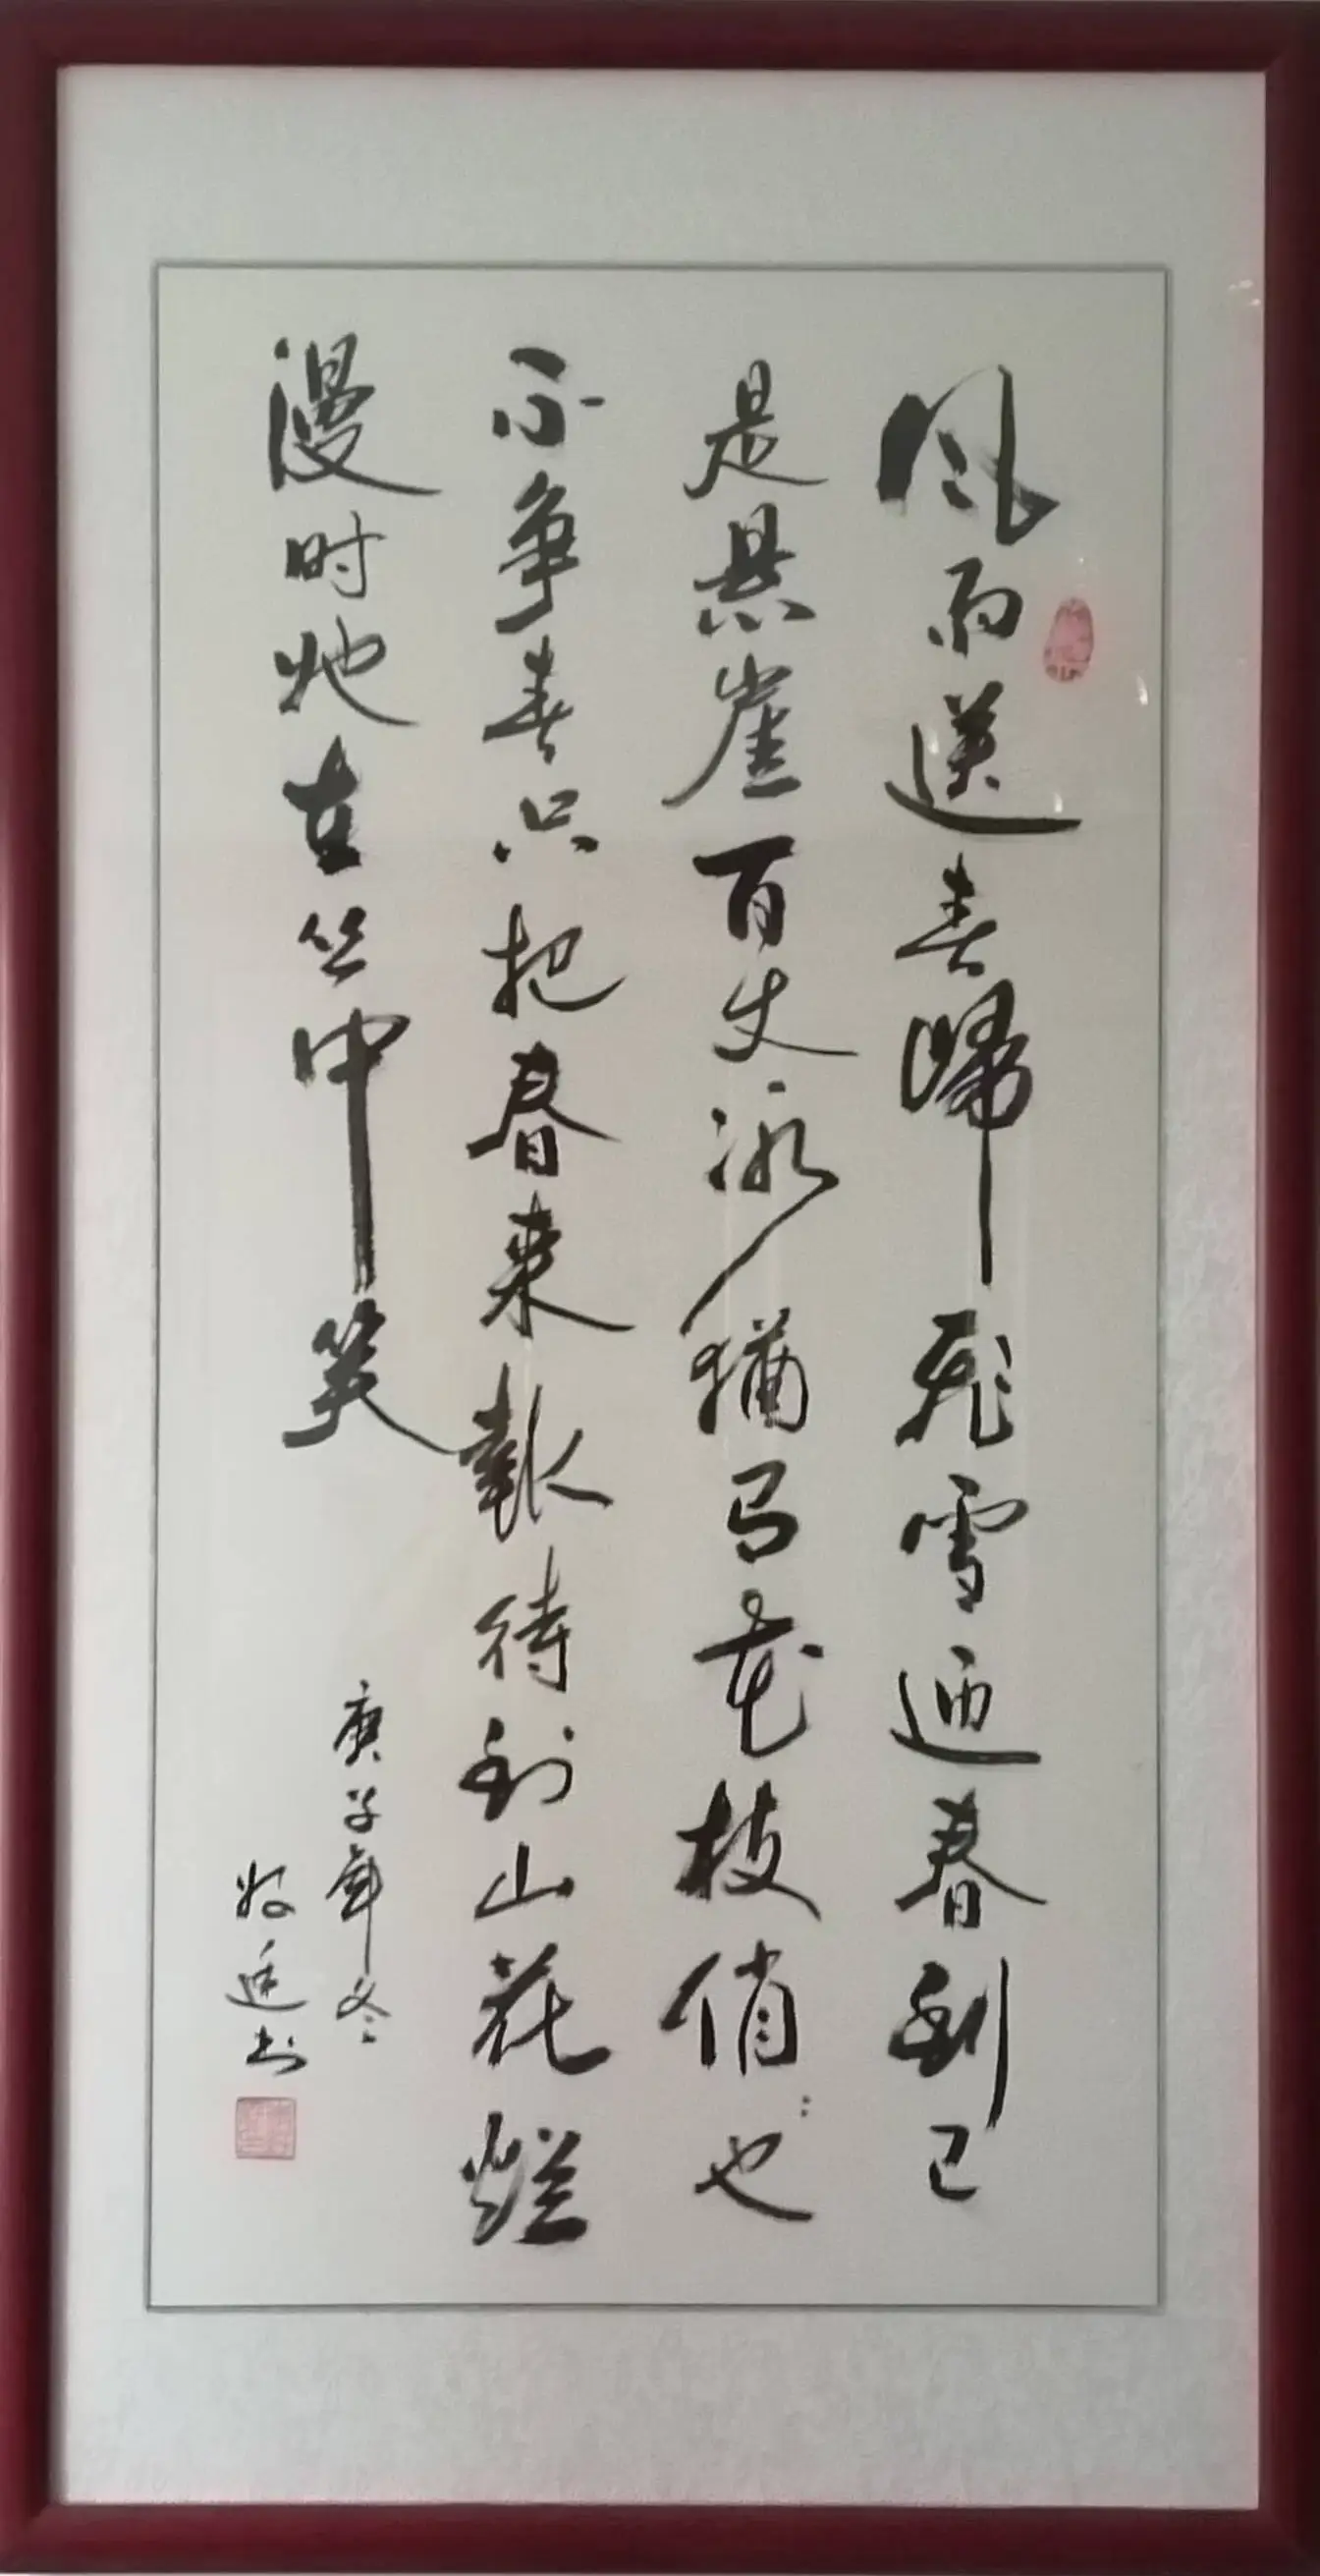 风雨送春歸飛雪迎春到已
是悬崖百丈冰猶有花枝俏:也
不争春只把春来報待到山花烂
漫时她在丛中笑
庚子年冬
书